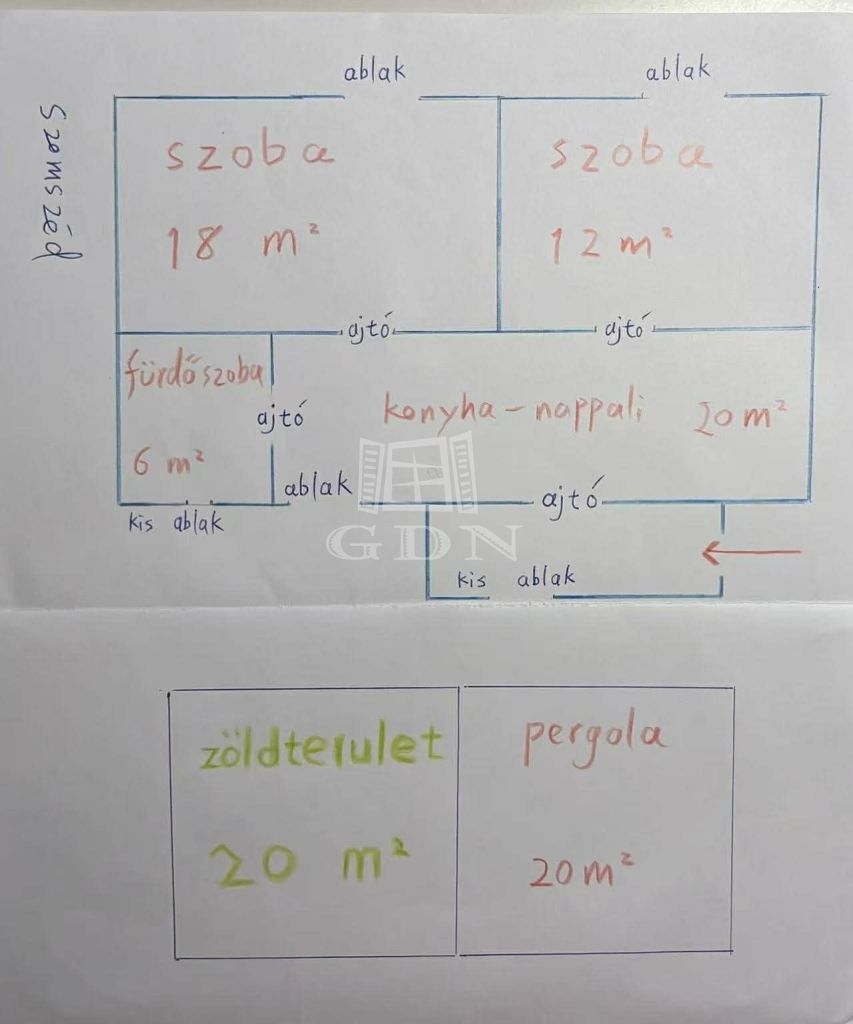 ablak
ablak
Szomszéd
szoba
szoba
18 m²
12 m²
ajtó
ajtó
fürdőszoba
ajtó
konyha - nappali
20 m²
6 m²
ablak
ajtó
kis ablak
GDN
kis ablak
zöldterulet
pergola
20 m²
20 m²